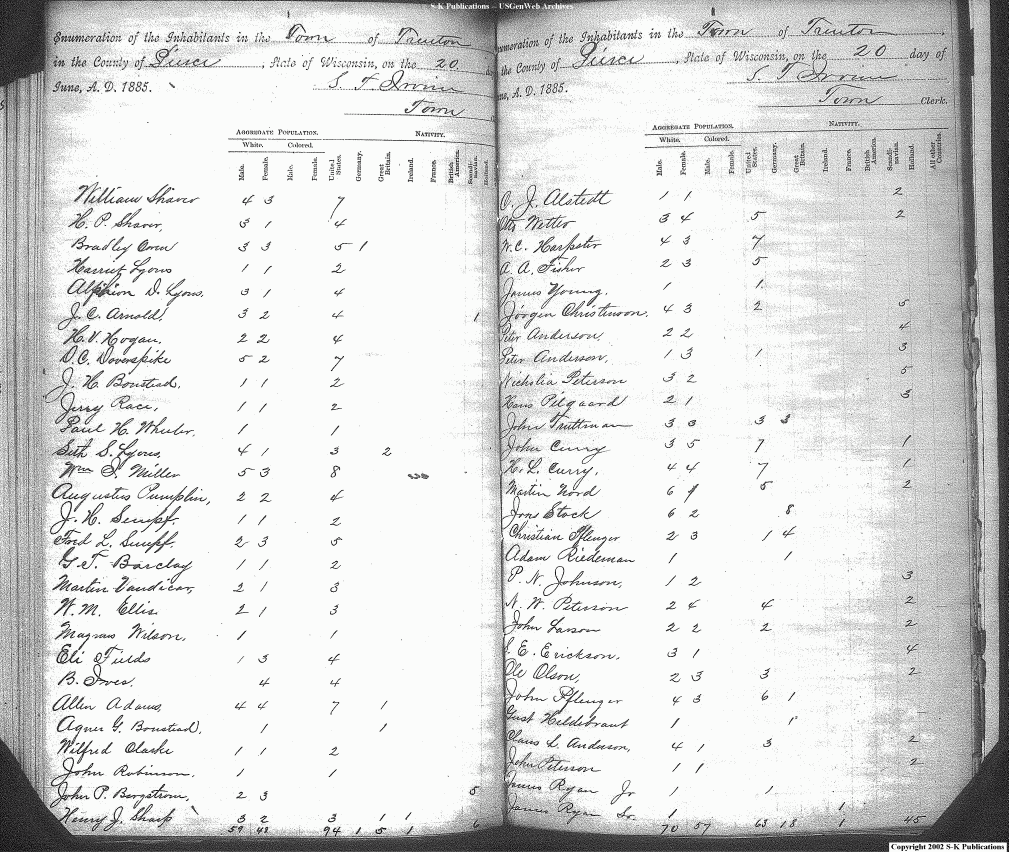 S-K Publications -- USGenWeb Archives
Enumeration of the Inhabitants in the Town of Trenton
in the County of Pierce, State of Wisconsin, on the 20
June, A. D. 1885. S. T. Irvine
Town
AGGREGATE POPULATION. NATIVITY.
White. Colored.
Male. Female. Male. Female. United States. Germany. Great Britain. Ireland. France. British America. Scandinavian. Holland.
William Shaver 4 3 7
H. P. Shaver, 3 1 4
Bradley Owen 3 3 5 1
Harriet Lyons 1 1 2
D. Lyons, 3 1 4
J. C. Arnold, 3 2 4 1
H. V. Hogan, 2 2 4
D. C. Doverspike 5 2 7
J. H. Boustead, 1 1 2
Jerry Race, 1 1 2
Paul H. Wheeler, 1 1
Seth S. Lyons, 4 1 3 2
Wm S. Miller 5 3 8
Augustus Pumplin, 2 2 4
J. H. Sempf. 1 1 2
Fred L. Sempf. 2 3 5
G. T. Barclay 1 1 2
Martin Vandicar, 2 1 3
W. M. Ellis 2 1 3
Magnus Wilson, 1 1
Eli Fields 1 3 4
B. Ives. 4 4
Allen Adams, 4 4 7 1
Agnes G. Boustead, 1 1
Wilfred Clarke 1 1 2
John Robinson, 1 1
John P. Bergstrom, 2 3 5
Henry J. Sharp 3 2 3 1 1
59 48 94 1 5 1 6
Enumeration of the Inhabitants in the Town of Trenton,
the County of Pierce, State of Wisconsin, on the 20 day of
A. D. 1885. S. T. Irvine
Town Clerk.
AGGREGATE POPULATION. NATIVITY.
White. Colored.
Male. Female. Male. Female. United States. Germany. Great Britain. Ireland. France. British America. Scandinavian. Holland. All other Countries.
C. J. Alstedt 1 1 2
Otto Wetter 3 4 5 2
W. C. Harpster 4 3 7
A. A. Fisher 2 3 5
James Young. 1 1
Jörgen Christenson. 4 3 2 5
Peter Anderson, 2 2 4
Peter Anderson, 1 3 1 3
Nicholia Peterson 3 2 5
Hans Pilgaard 2 1 3
John Truttman 3 3 3 3
John Curry 3 5 7 1
H. L. Curry, 4 4 7 1
Martin Nord 6 1 5 2
Jon Stock 6 2 8
Christian Pflenger 2 3 1 4
Adam Riedeman 1 1
P. N. Johnson, 1 2 3
N. W. Peterson 2 4 4 2
John Larson 2 2 2 2
E. Erickson, 3 1 4
Ole Olson, 2 3 3 2
John Pflenger 4 3 6 1
Gust Hildebrant 1 1
Claus L. Anderson, 4 1 3 2
John Peterson 1 1 2
James Ryan Jr 1 1
James Ryan Sr. 1 1
70 57 63 18 1 45
Copyright 2002 S-K Publications